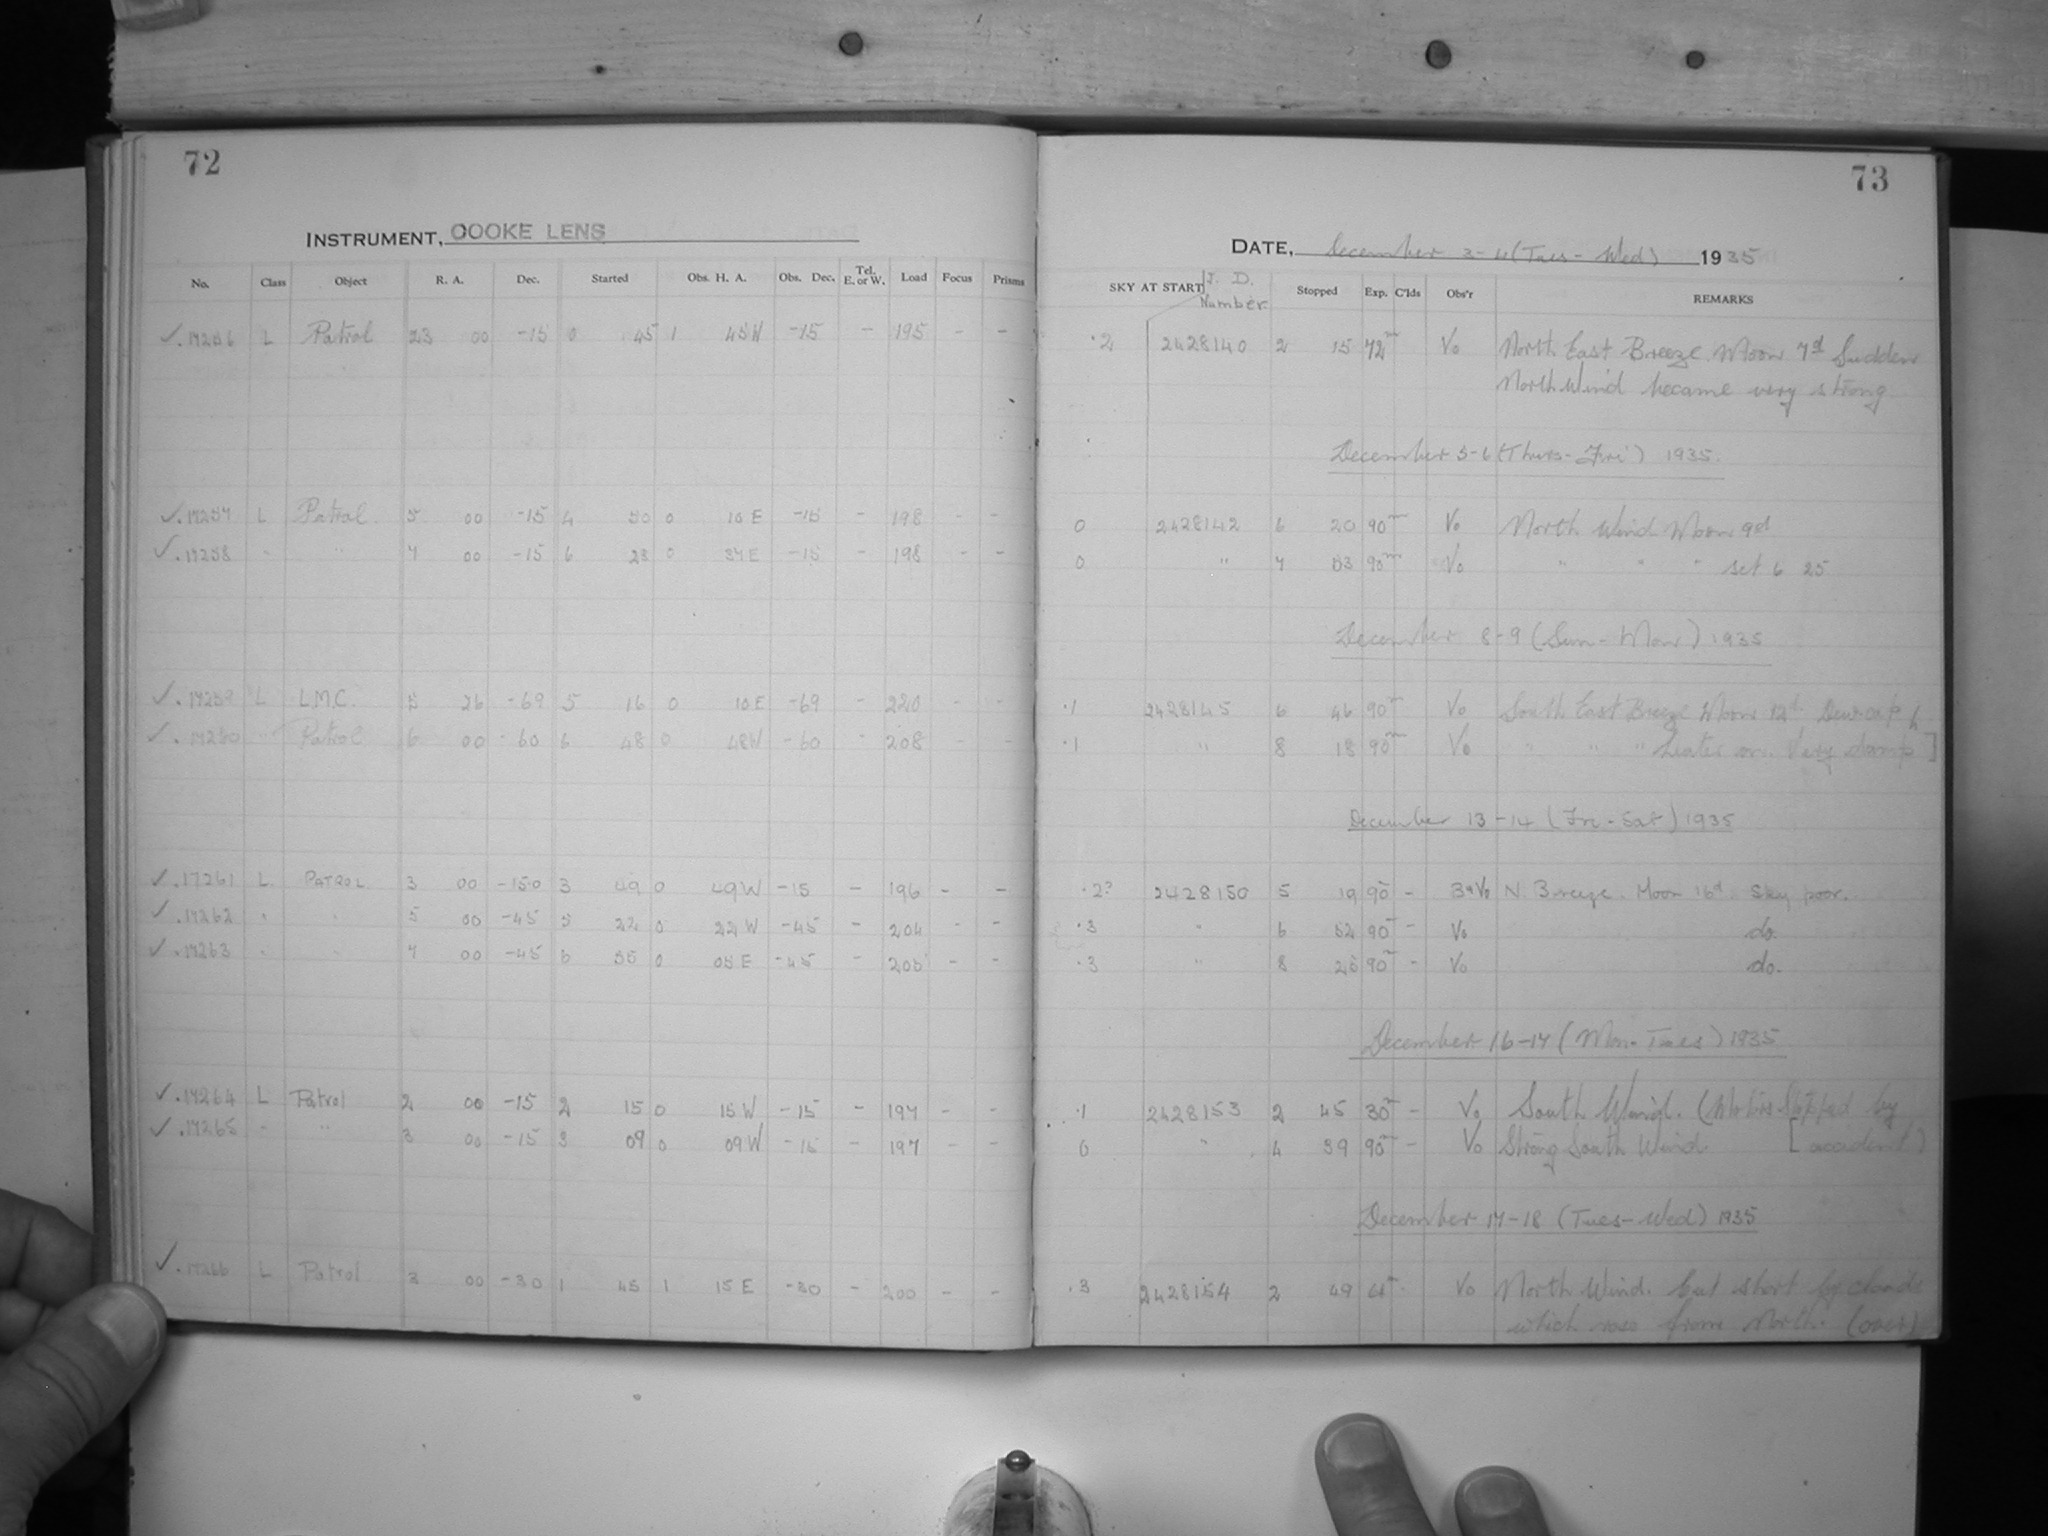 72
INSTRUMENT, COOKE LENS
No. Class Object R. A. Dec. Started Obs. H. A. Obs. Dec. Tel. E. or W. Load Focus Prisms
✓.17256 L Patrol 23 00 -15 0 45 1 45W -15 - 195 - -
✓.17257 L Patrol 5 00 -15 4 50 0 10E -15 - 198 - -
✓.17258 " " 7 00 -15 6 23 0 37E -15 - 198 - -
✓.17259 L L.M.C. 5 26 -69 5 16 0 10E -69 - 220 - -
✓.17260 " Patrol 6 00 -60 6 48 0 48W -60 - 208 - -
✓.17261 L PATROL 3 00 -15 0 3 49 0 49W -15 - 196 - -
✓.17262 " " 5 00 -45 5 22 0 22W -45 - 204 - -
✓.17263 " " 7 00 -45 6 55 0 05E -45 - 205 - -
✓.17264 L Patrol 2 00 -15 2 15 0 15W -15 - 197 - -
✓.17265 " " 3 00 -15 3 09 0 09W -15 - 197 - -
✓.17266 L Patrol 3 00 -30 1 45 1 15E -30 - 200 - -
73
DATE, December 3-4 (Tues-Wed) 1935
SKY AT START J. D. Number Stopped Exp. C'lds Obs'r REMARKS
.2 2428140 2 15 72m Vo North East Breeze. Moon 7d Sudden
North Wind became very strong
December 5-6 (Thurs-Fri) 1935.
0 2428142 6 20 90m Vo North Wind Moon 9d
0 " 7 53 90m Vo " " " set 6 25
December 8-9 (Sun-Mon) 1935
.1 2428145 6 46 90m Vo South East Breeze Moon 12d Dewcap
.1 " 8 18 90m Vo " " " Heater on. Very damp]
December 13-14 (Fri-Sat) 1935
.2? 2428150 5 19 90 - Vo N. Breeze. Moon 16d. Sky poor.
.3 " 6 52 90m - Vo do.
.3 " 8 25 90m - Vo do.
December 16-17 (Mon-Tues) 1935
.1 2428153 2 45 30m - Vo South Wind. (Motion Stopped by
0 " 4 39 90m - Vo Strong South Wind. [accident)
December 17-18 (Tues-Wed) 1935
.3 2428154 2 49 Vo North Wind. Cut short by clouds
which rose from North. (over)